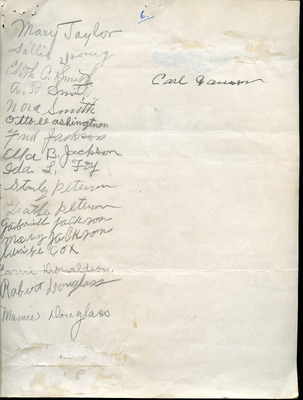 6.
Mary Taylor
Sallie Young
Edith C. Smith
A. R. Smith
Nora Smith
Otto Washington
Fred Jackson
Ella B. Jackson
Ida L. Foy
Stanly Peterson
Peterson
Gabriell Jackson
Mary Jackson
Cox
Carrie Donaldson.
Robert Douglass
Mamie Douglass
Carl